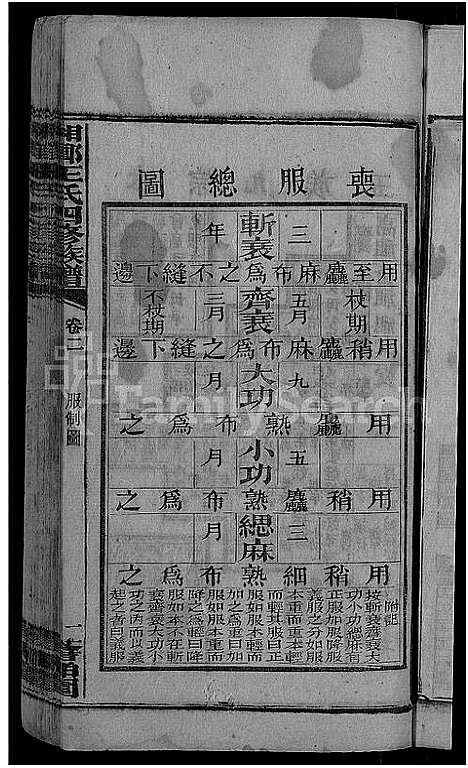 喪服總圖
三年
斬衰
用至麤麻布為之不縫下邊
杖期
五月
齊衰
三月
不杖期
用稍麤麻布為之縫下邊
九月
大功
用麤熟布為之
五月
小功
用稍麤熟布為之
三月
緦麻
用稍細熟布為之
附記
按斬衰齊衰大
功小功緦麻有
正服加服降服
義服之分如服
本重而本輕
而輕其服曰正
服如服本輕而
加之為重曰加
服如服本重而
降之為輕曰降
服如本不在斬
衰齊衰大功小
功之內而以義
起之者曰義服
湘鄉王氏四修族譜
卷二
服制圖
一
FamilySearch